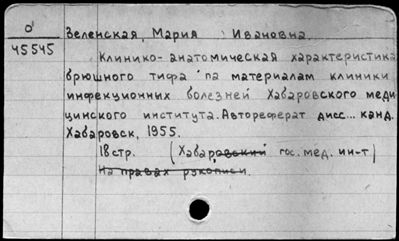 0
45545
Зеленская, Мария Ивановна.
Клинико-анатомическая характеристика
брюшного тифа па материалам клиники
инфекционных болезней Хабаровского меди
цинского института. Автореферат дисс... канд.
Хабаровск, 1955.
18стр. (Хабаровский гос. мед. ин-т)
На правах рукописи.